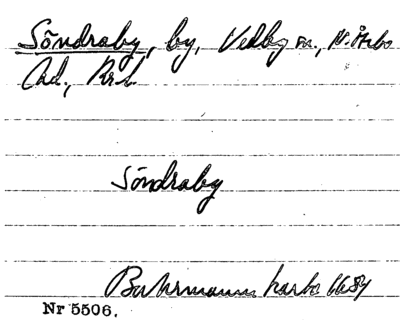 Söndraby, by, Vedby sn., N. Åsbo
hd., Krl.
Söndraby
Buhrmanns karta 1684
Nr 5506.